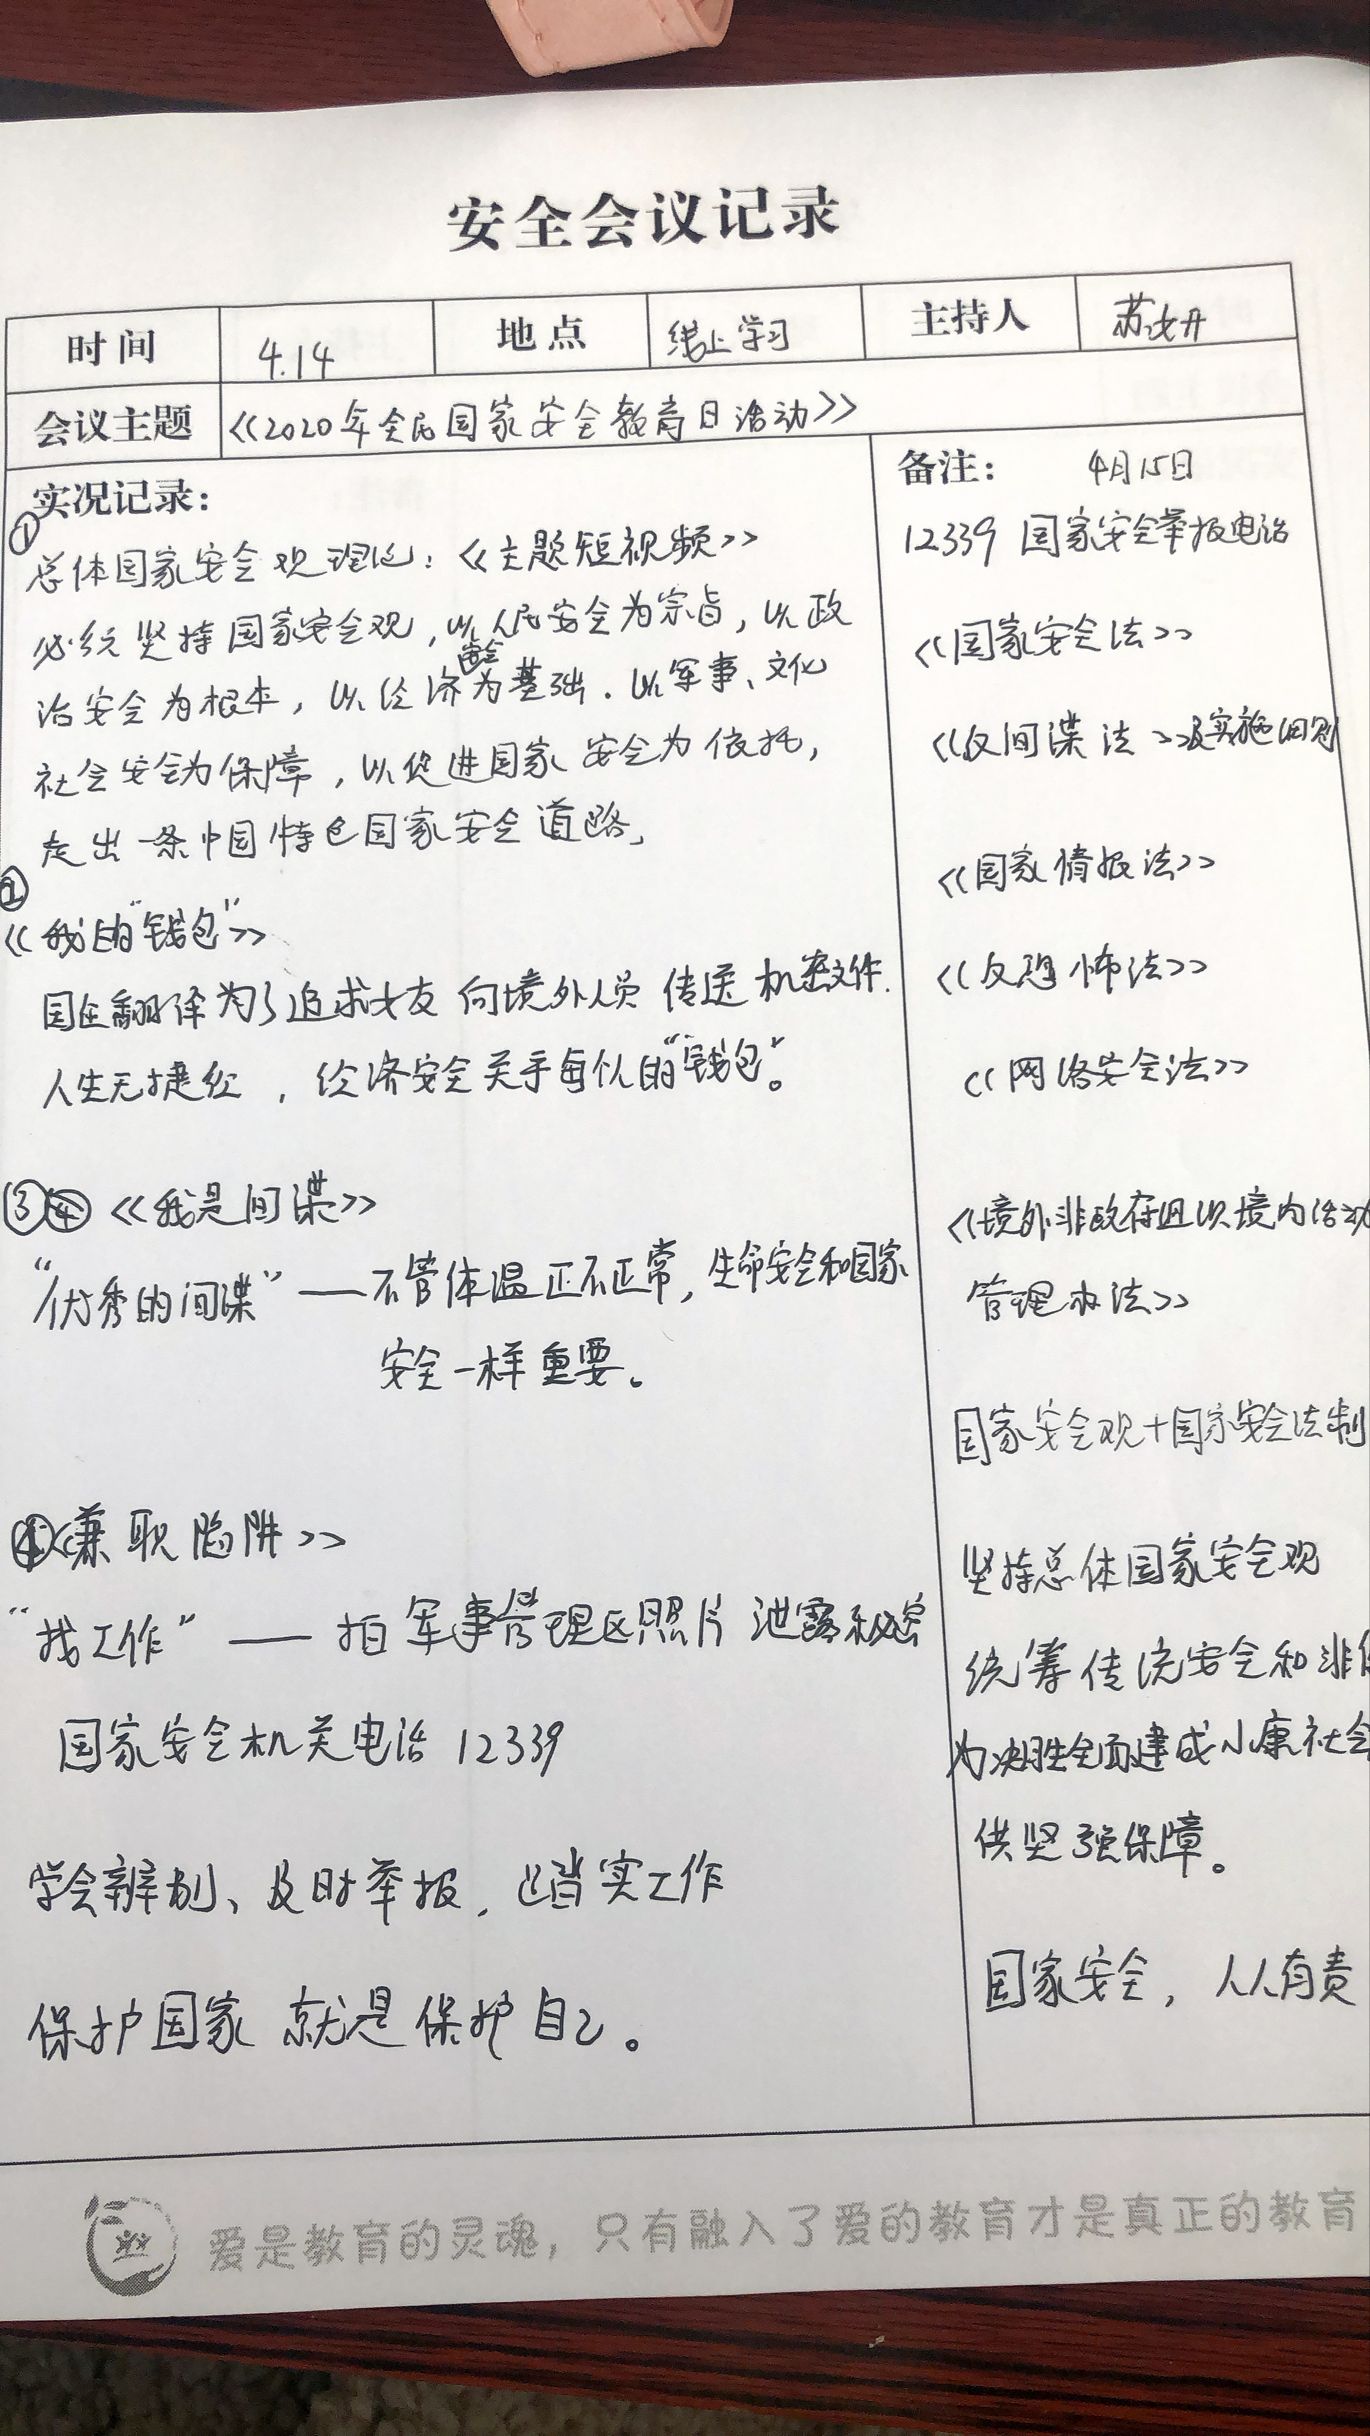 安全会议记录
时间 4.14 地点 线上学习 主持人 苏
会议主题 《2020年全民国家安全教育日活动》
实况记录：
①
总体国家安全观理论：《主题短视频》
必须坚持国家安全观，以人民安全为宗旨，以政
治安全为根本，以经济安全为基础．以军事、文化
社会安全为保障，以促进国家安全为依托，
走出一条中国特色国家安全道路，
②
《我的“钱包”》
国企翻译为了追求女友向境外人员传送机密文件．
人生无捷径，经济安全关乎每个人的“钱包”。
③ 《我是间谍》
“优秀的间谍”——不管体温正不正常，生命安全和国家
安全一样重要。
④《兼职陷阱》
“找工作”——拍军事管理区照片泄露秘密
国家安全机关电话12339
学会辨别、及时举报，踏实工作
保护国家就是保护自己。
备注： 4月15日
12339 国家安全举报电话
《国家安全法》
《反间谍法》及实施细则
《国家情报法》
《反恐怖法》
《网络安全法》
《境外非政府组织境内活动
管理办法》
国家安全观+国家安全法制
坚持总体国家安全观
统筹传统安全和非
为决胜全面建成小康社会
供坚强保障。
国家安全，人人有责
爱是教育的灵魂，只有融入了爱的教育才是真正的教育